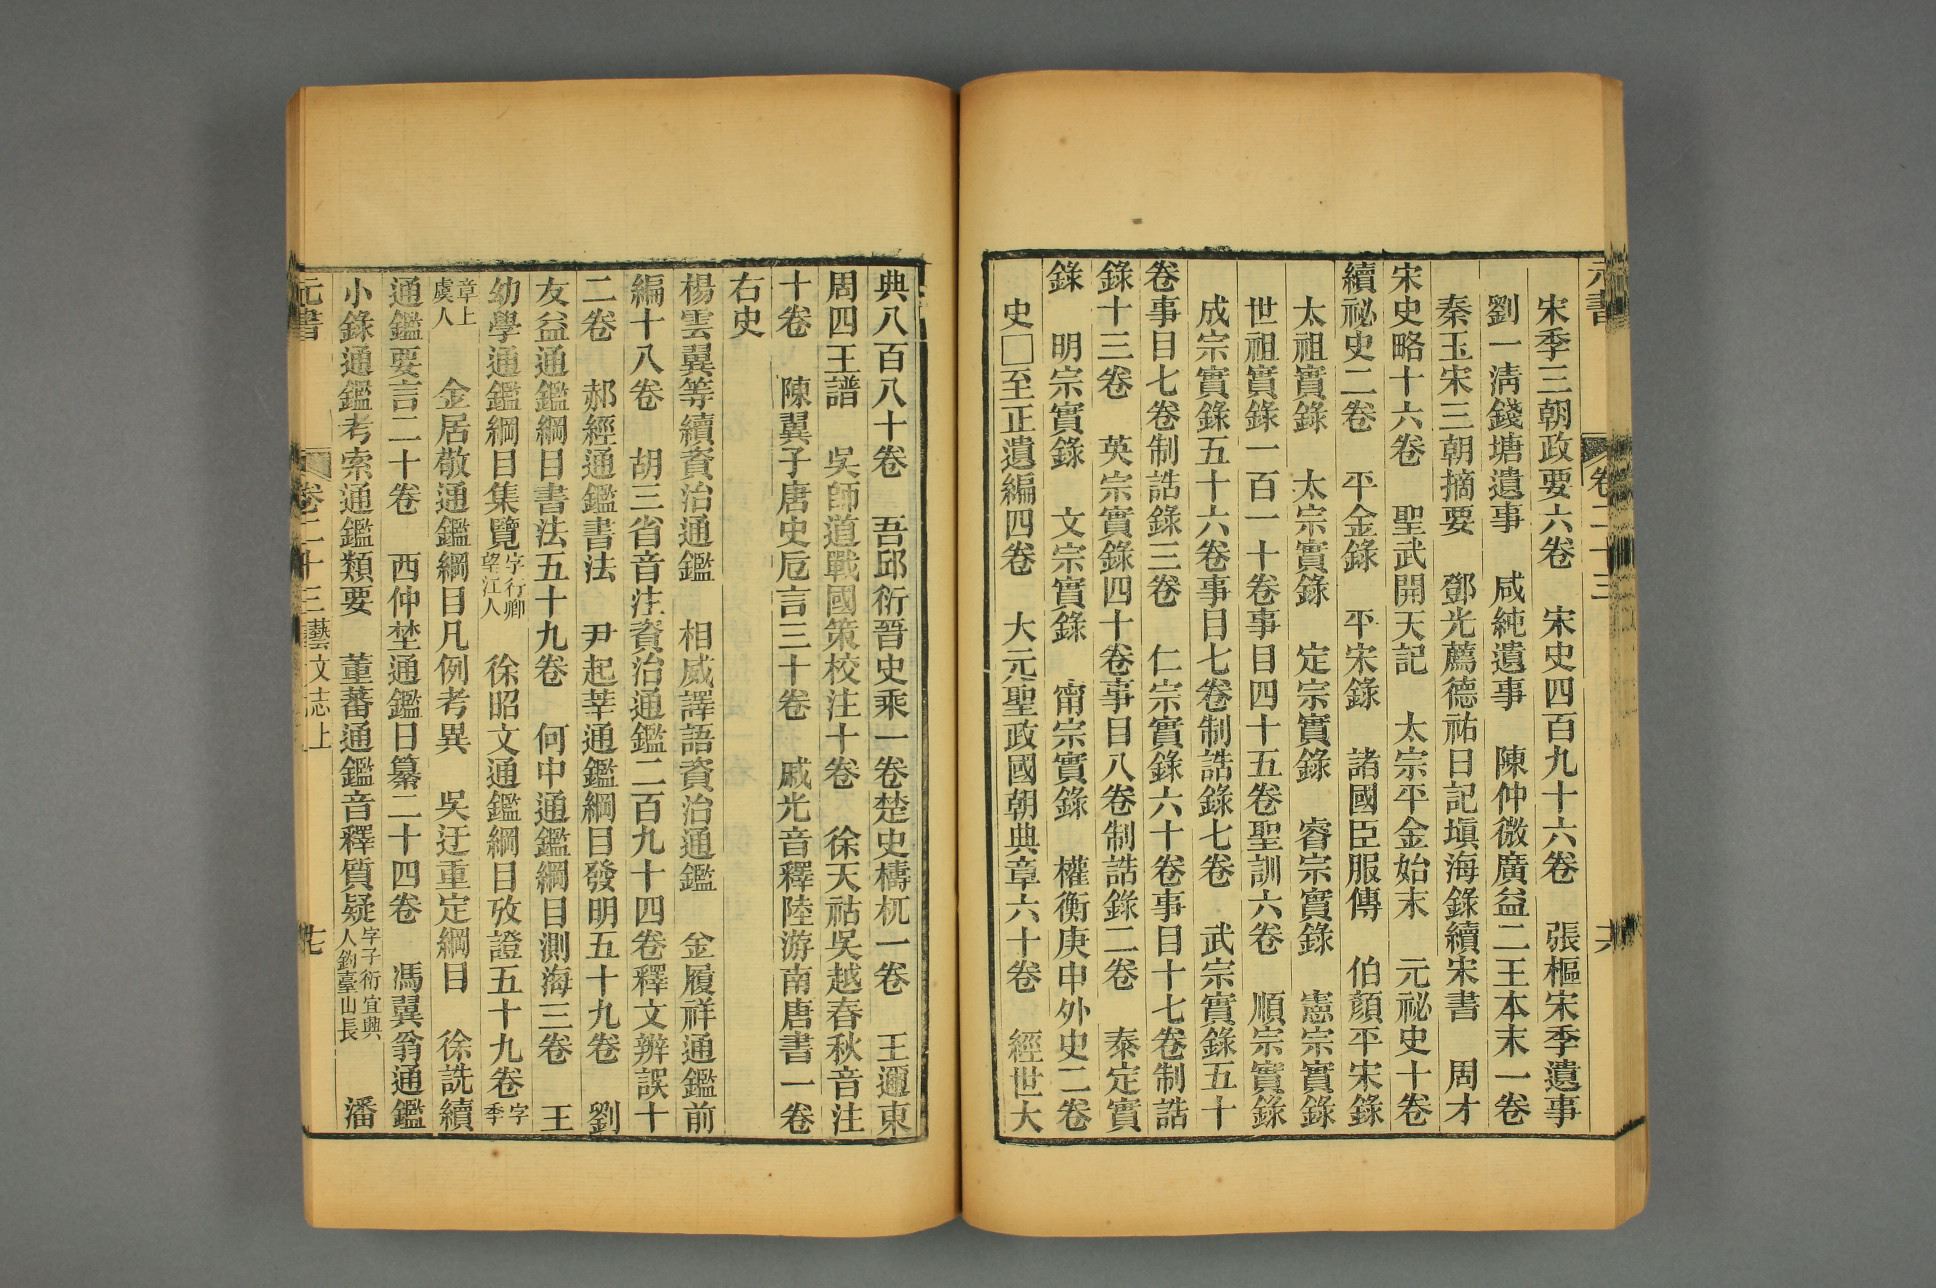 元書
卷二十三
宋季三朝政要六卷　宋史四百九十六卷　張樞宋季遺事
劉一淸錢塘遺事　咸純遺事　陳仲微廣益二王本末一卷
秦玉宋三朝摘要　鄧光薦德祐日記塡海錄續宋書　周才
宋史略十六卷　聖武開天記　太宗平金始末　元祕史十卷
續祕史二卷　平金錄　平宋錄　諸國臣服傳　伯顏平宋錄
太祖實錄　太宗實錄　定宗實錄　睿宗實錄　憲宗實錄
世祖實錄一百一十卷事目四十五卷聖訓六卷　順宗實錄
成宗實錄五十六卷事目七卷制誥錄七卷　武宗實錄五十
卷事目七卷制誥錄三卷　仁宗實錄六十卷事目十七卷制誥
錄十三卷　英宗實錄四十卷事目八卷制誥錄二卷　泰定實
錄　明宗實錄　文宗實錄　甯宗實錄　權衡庚申外史二卷
史□至正遺編四卷　大元聖政國朝典章六十卷　經世大
典八百八十卷　吾邱衍晉史乘一卷楚史檮杌一卷　王邇東
周四王譜　吳師道戰國策校注十卷　徐天祜吳越春秋音注
十卷　陳翼子唐史卮言三十卷　戚光音釋陸游南唐書一卷
右史
楊雲翼等續資治通鑑　相威譯語資治通鑑　金履祥通鑑前
編十八卷　胡三省音注資治通鑑二百九十四卷釋文辨誤十
二卷　郝經通鑑書法　尹起莘通鑑綱目發明五十九卷　劉
友益通鑑綱目書法五十九卷　何中通鑑綱目測海三卷　王
幼學通鑑綱目集覽字行卿望江人　徐昭文通鑑綱目攷證五十九卷字季
章上虞人　金居敬通鑑綱目凡例考異　吳迂重定綱目　徐詵續
通鑑要言二十卷　西仲埜通鑑日纂二十四卷　馮翼翁通鑑
小錄通鑑考索通鑑類要　董蕃通鑑音釋質疑字子衍宜興人釣臺山長　潘
元書
卷二十三藝文志上